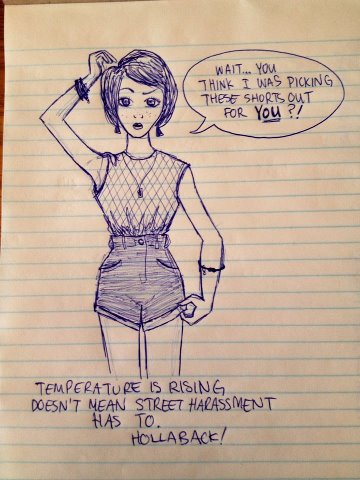 WAIT... YOU
THINK I WAS PICKING
THESE SHORTS OUT
FOR YOU?!
TEMPERATURE IS RISING
DOESN'T MEAN STREET HARASSMENT
HAS TO.
HOLLABACK!